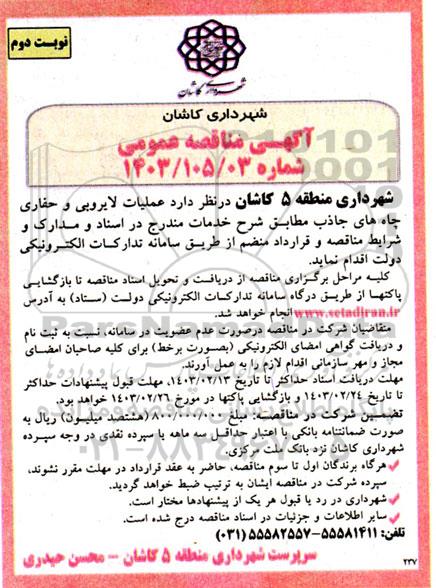 نوبت دوم
شهرداری کاشان
شهرداری کاشان
آگهی مناقصه عمومی
شماره ۱۴۰۳/۱۰۵/۰۳
شهرداری منطقه ۵ کاشان درنظر دارد عملیات لایروبی و حفاری
چاه های جاذب مطابق شرح خدمات مندرج در اسناد و مدارک و
شرایط مناقصه و قرارداد منضم از طریق سامانه تدارکات الکترونیکی
دولت اقدام نماید.
کلیه مراحل برگزاری مناقصه از دریافت و تحویل اسناد مناقصه تا بازگشایی
پاکتها از طریق درگاه سامانه تدارکات الکترونیکی دولت (ستاد) به آدرس
www.setadiran.ir انجام خواهد شد.
متقاضیان شرکت در مناقصه درصورت عدم عضویت در سامانه، نسبت به ثبت نام
و دریافت گواهی امضای الکترونیکی (بصورت برخط) برای کلیه صاحبان امضای
مجاز و مهر سازمانی اقدام لازم را به عمل آورند.
مهلت دریافت اسناد حداکثر تا تاریخ ۱۴۰۳/۰۲/۱۳، مهلت قبول پیشنهادات حداکثر
تا تاریخ ۱۴۰۳/۰۲/۲۴ و بازگشایی پاکتها در مورخ ۱۴۰۳/۰۲/۲۶ خواهد بود.
تضمین شرکت در مناقصه: مبلغ ۸۰۰/۰۰۰/۰۰۰ (هشتصد میلیون) ریال به
صورت ضمانتنامه بانکی با اعتبار حداقل سه ماهه یا سپرده نقدی در وجه سپرده
شهرداری کاشان نزد بانک ملت مرکزی.
هرگاه برندگان اول تا سوم مناقصه، حاضر به عقد قرارداد در مهلت مقرر نشوند،
سپرده شرکت در مناقصه ایشان به ترتیب ضبط خواهد گردید.
شهرداری در رد یا قبول هر یک از پیشنهادها مختار است.
سایر اطلاعات و جزئیات در اسناد مناقصه درج شده است.
تلفن: ۵۵۵۸۱۴۱۱-۵۵۵۸۲۵۵۷ (۰۳۱)
سرپرست شهرداری منطقه ۵ کاشان – محسن حیدری
۲۳۷